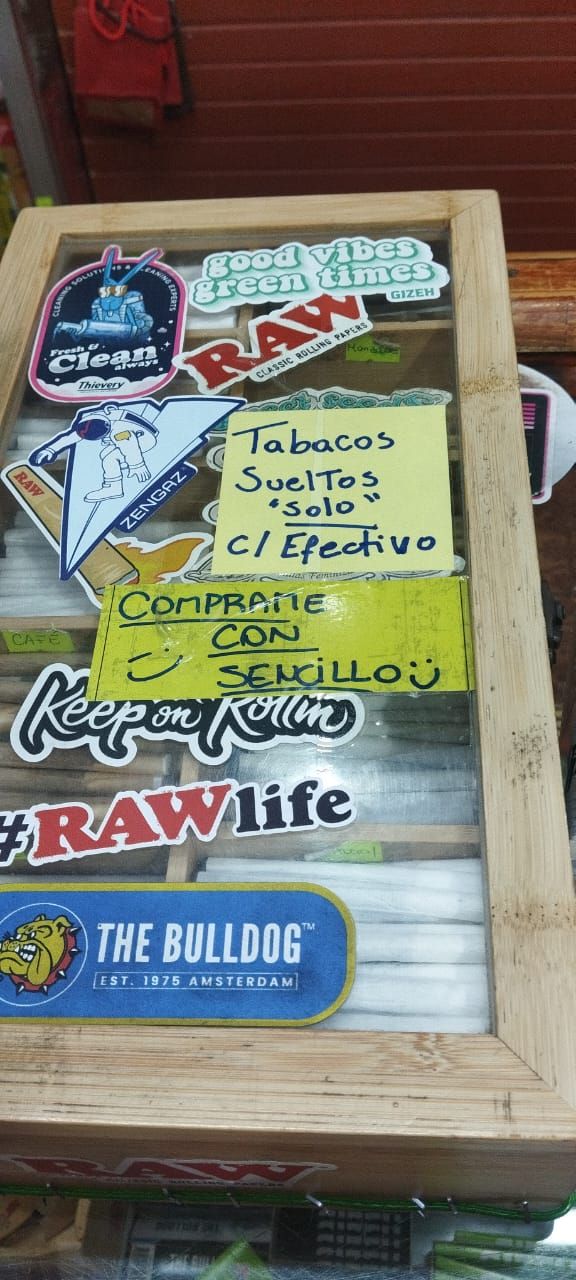 CLEANING SOLUTIONS & CLEANING EXPERTS
Fresh &
Clean
always
Thievery
good vibes
green times
GIZEH
RAW
CLASSIC ROLLING PAPERS
ZENGAZ
RAW
Tabacos
Sueltos
"solo"
C/ Efectivo
COMPRAME
CON
SENCILLO
CAFÉ
Keep on Rollin
#RAWlife
THE BULLDOG™
EST. 1975 AMSTERDAM
RAW